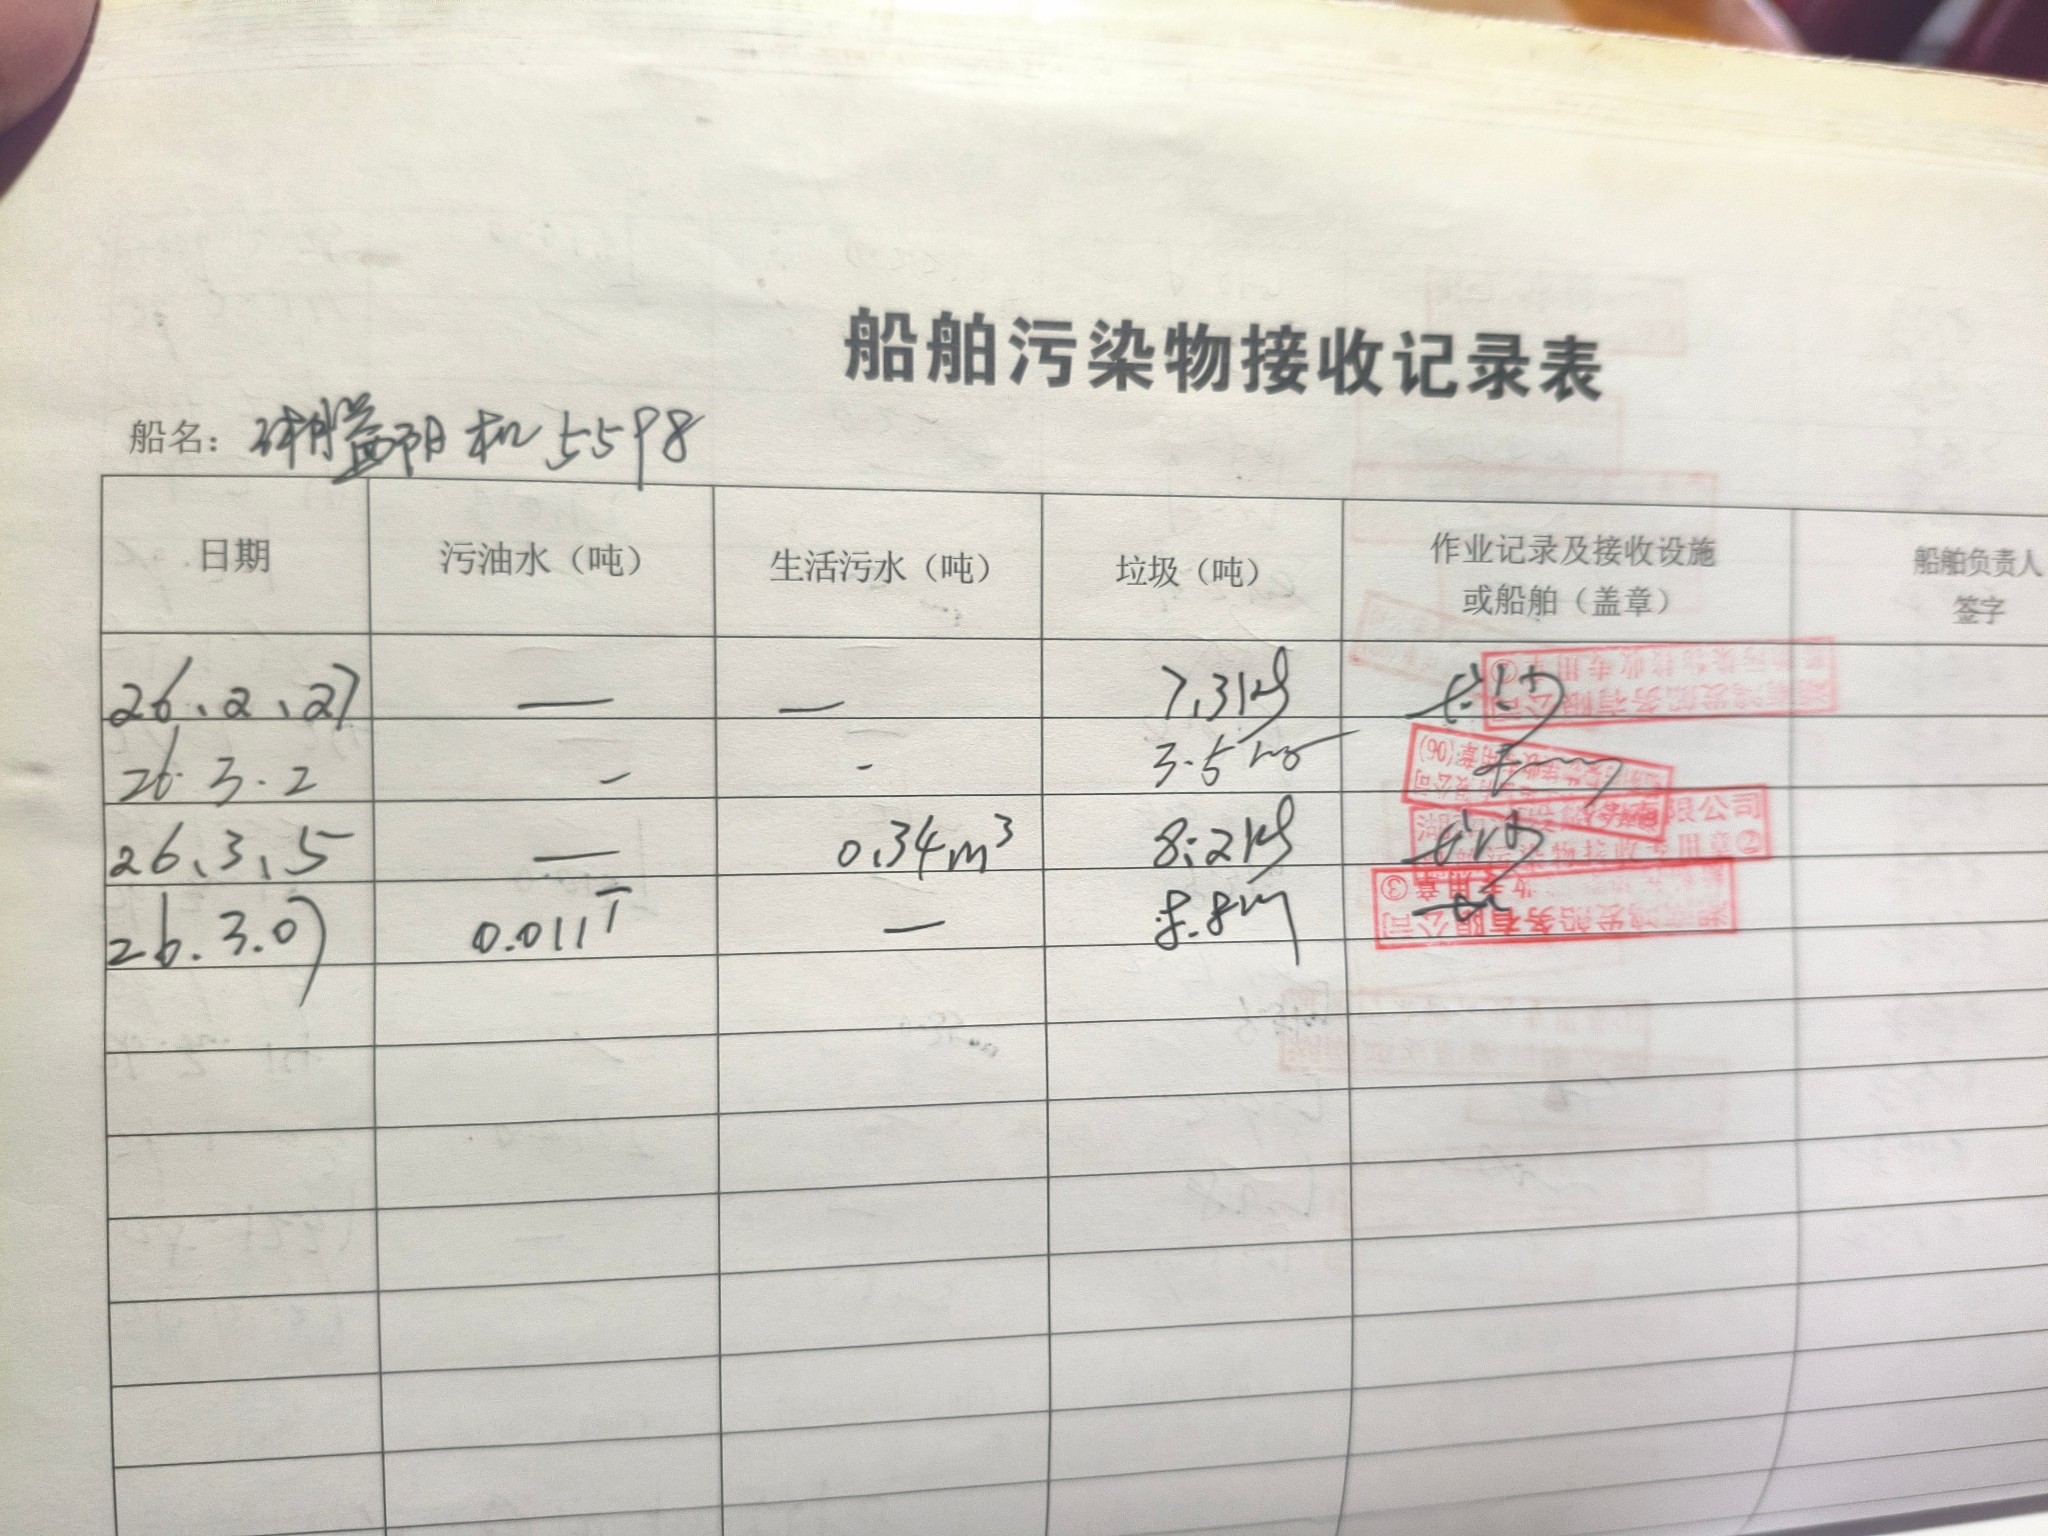 船舶污染物接收记录表
船名：湘益阳机5598
日期 污油水（吨） 生活污水（吨） 垃圾（吨） 作业记录及接收设施或船舶（盖章） 船舶负责人签字
26、2、27 — — 7.3kg
26.3.2 — - 3.5kg
26、3、5 — 0.34m³ 8.2kg
26.3.07 0.011T — 8.8kg
限公司
用章②
发船务有限公司
③